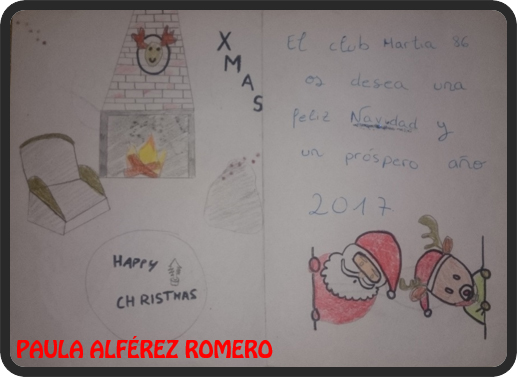 XMAS
HAPPY
CHRISTMAS
El club Martia 86
os desea una
feliz Navidad y
un próspero año
2017
PAULA ALFÉREZ ROMERO